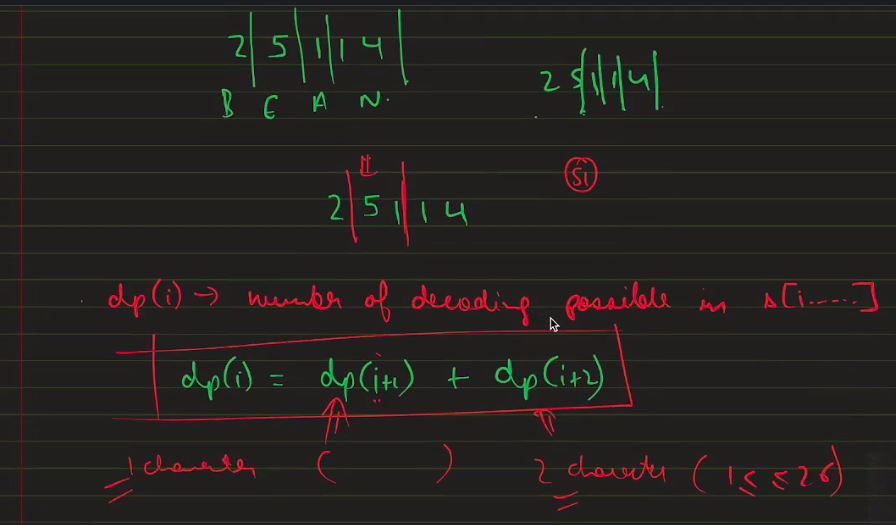 2 | 5 | 1 | 1 4 |
B E A N.
2 5 | 1 | 1 | 4 |
51
2 | 5 1 | 1 4
dp(i) → number of decoding possible in s[i......]
dp(i) = dp(i+1) + dp(i+2)
1 character ( ) 2 character (1 ≤ ≤ 26)